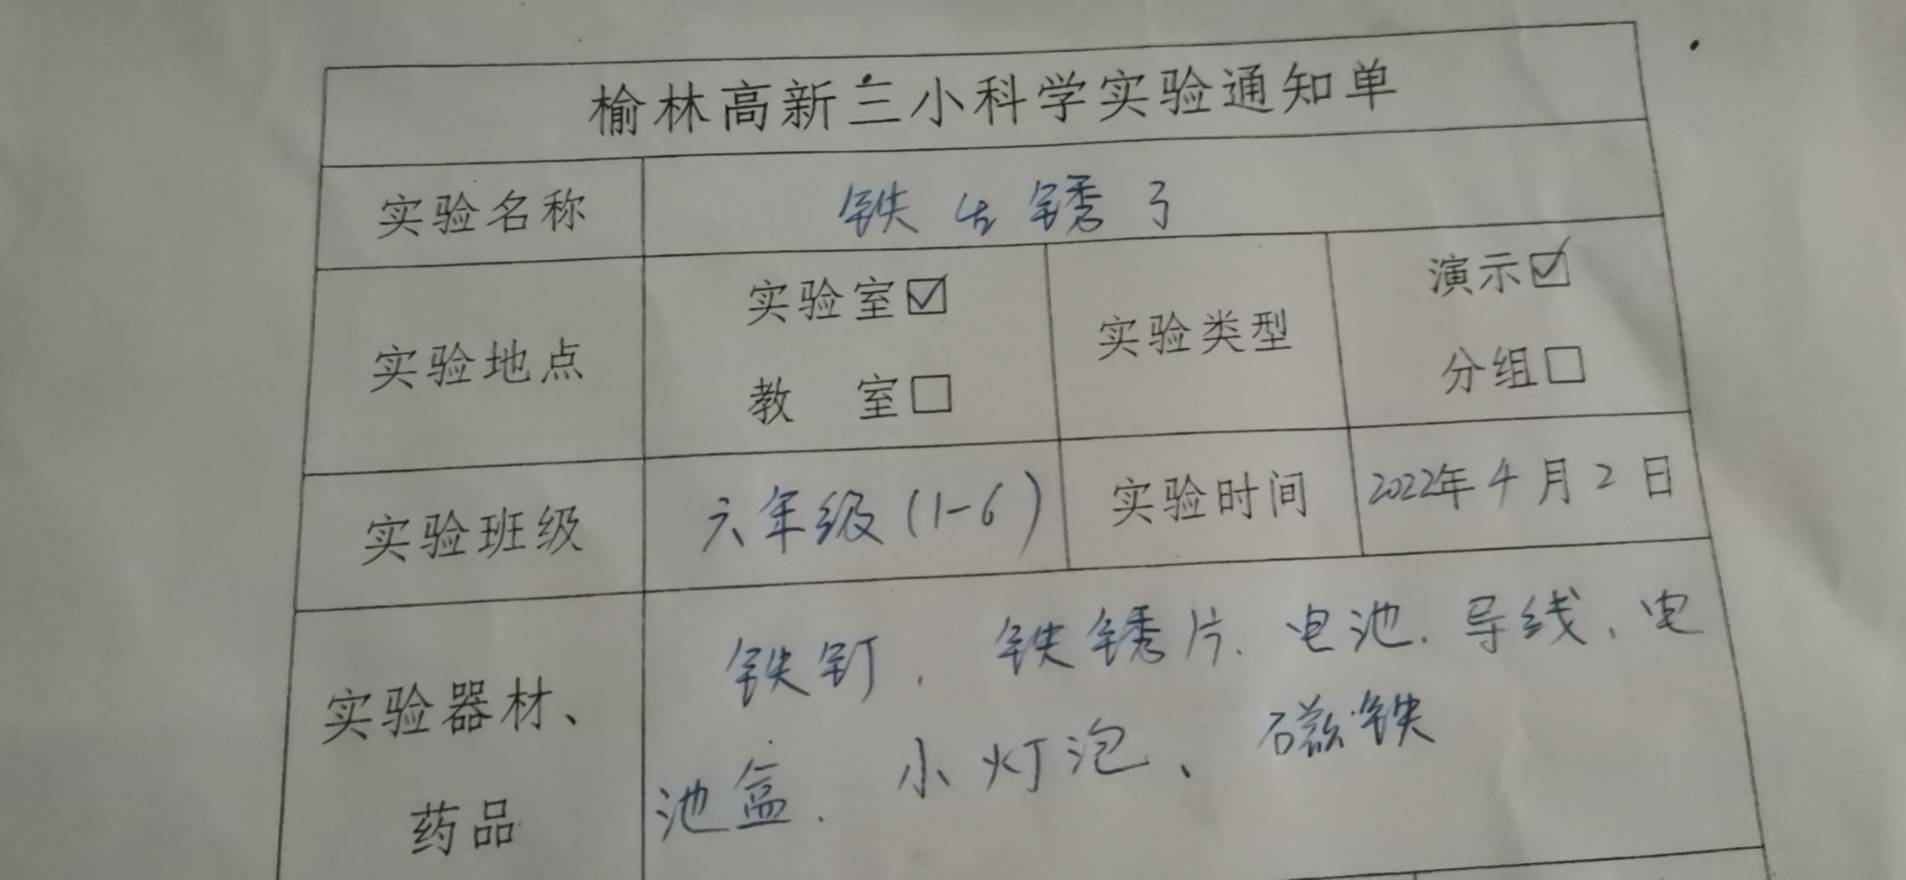 榆林高新三小科学实验通知单
实验名称 铁生锈了
实验地点 实验室☑ 教 室□ 实验类型 演示☑ 分组□
实验班级 六年级(1-6) 实验时间 2022年4月2日
实验器材、药品 铁钉、铁锈片、电池、导线、电
池盒、小灯泡、磁铁